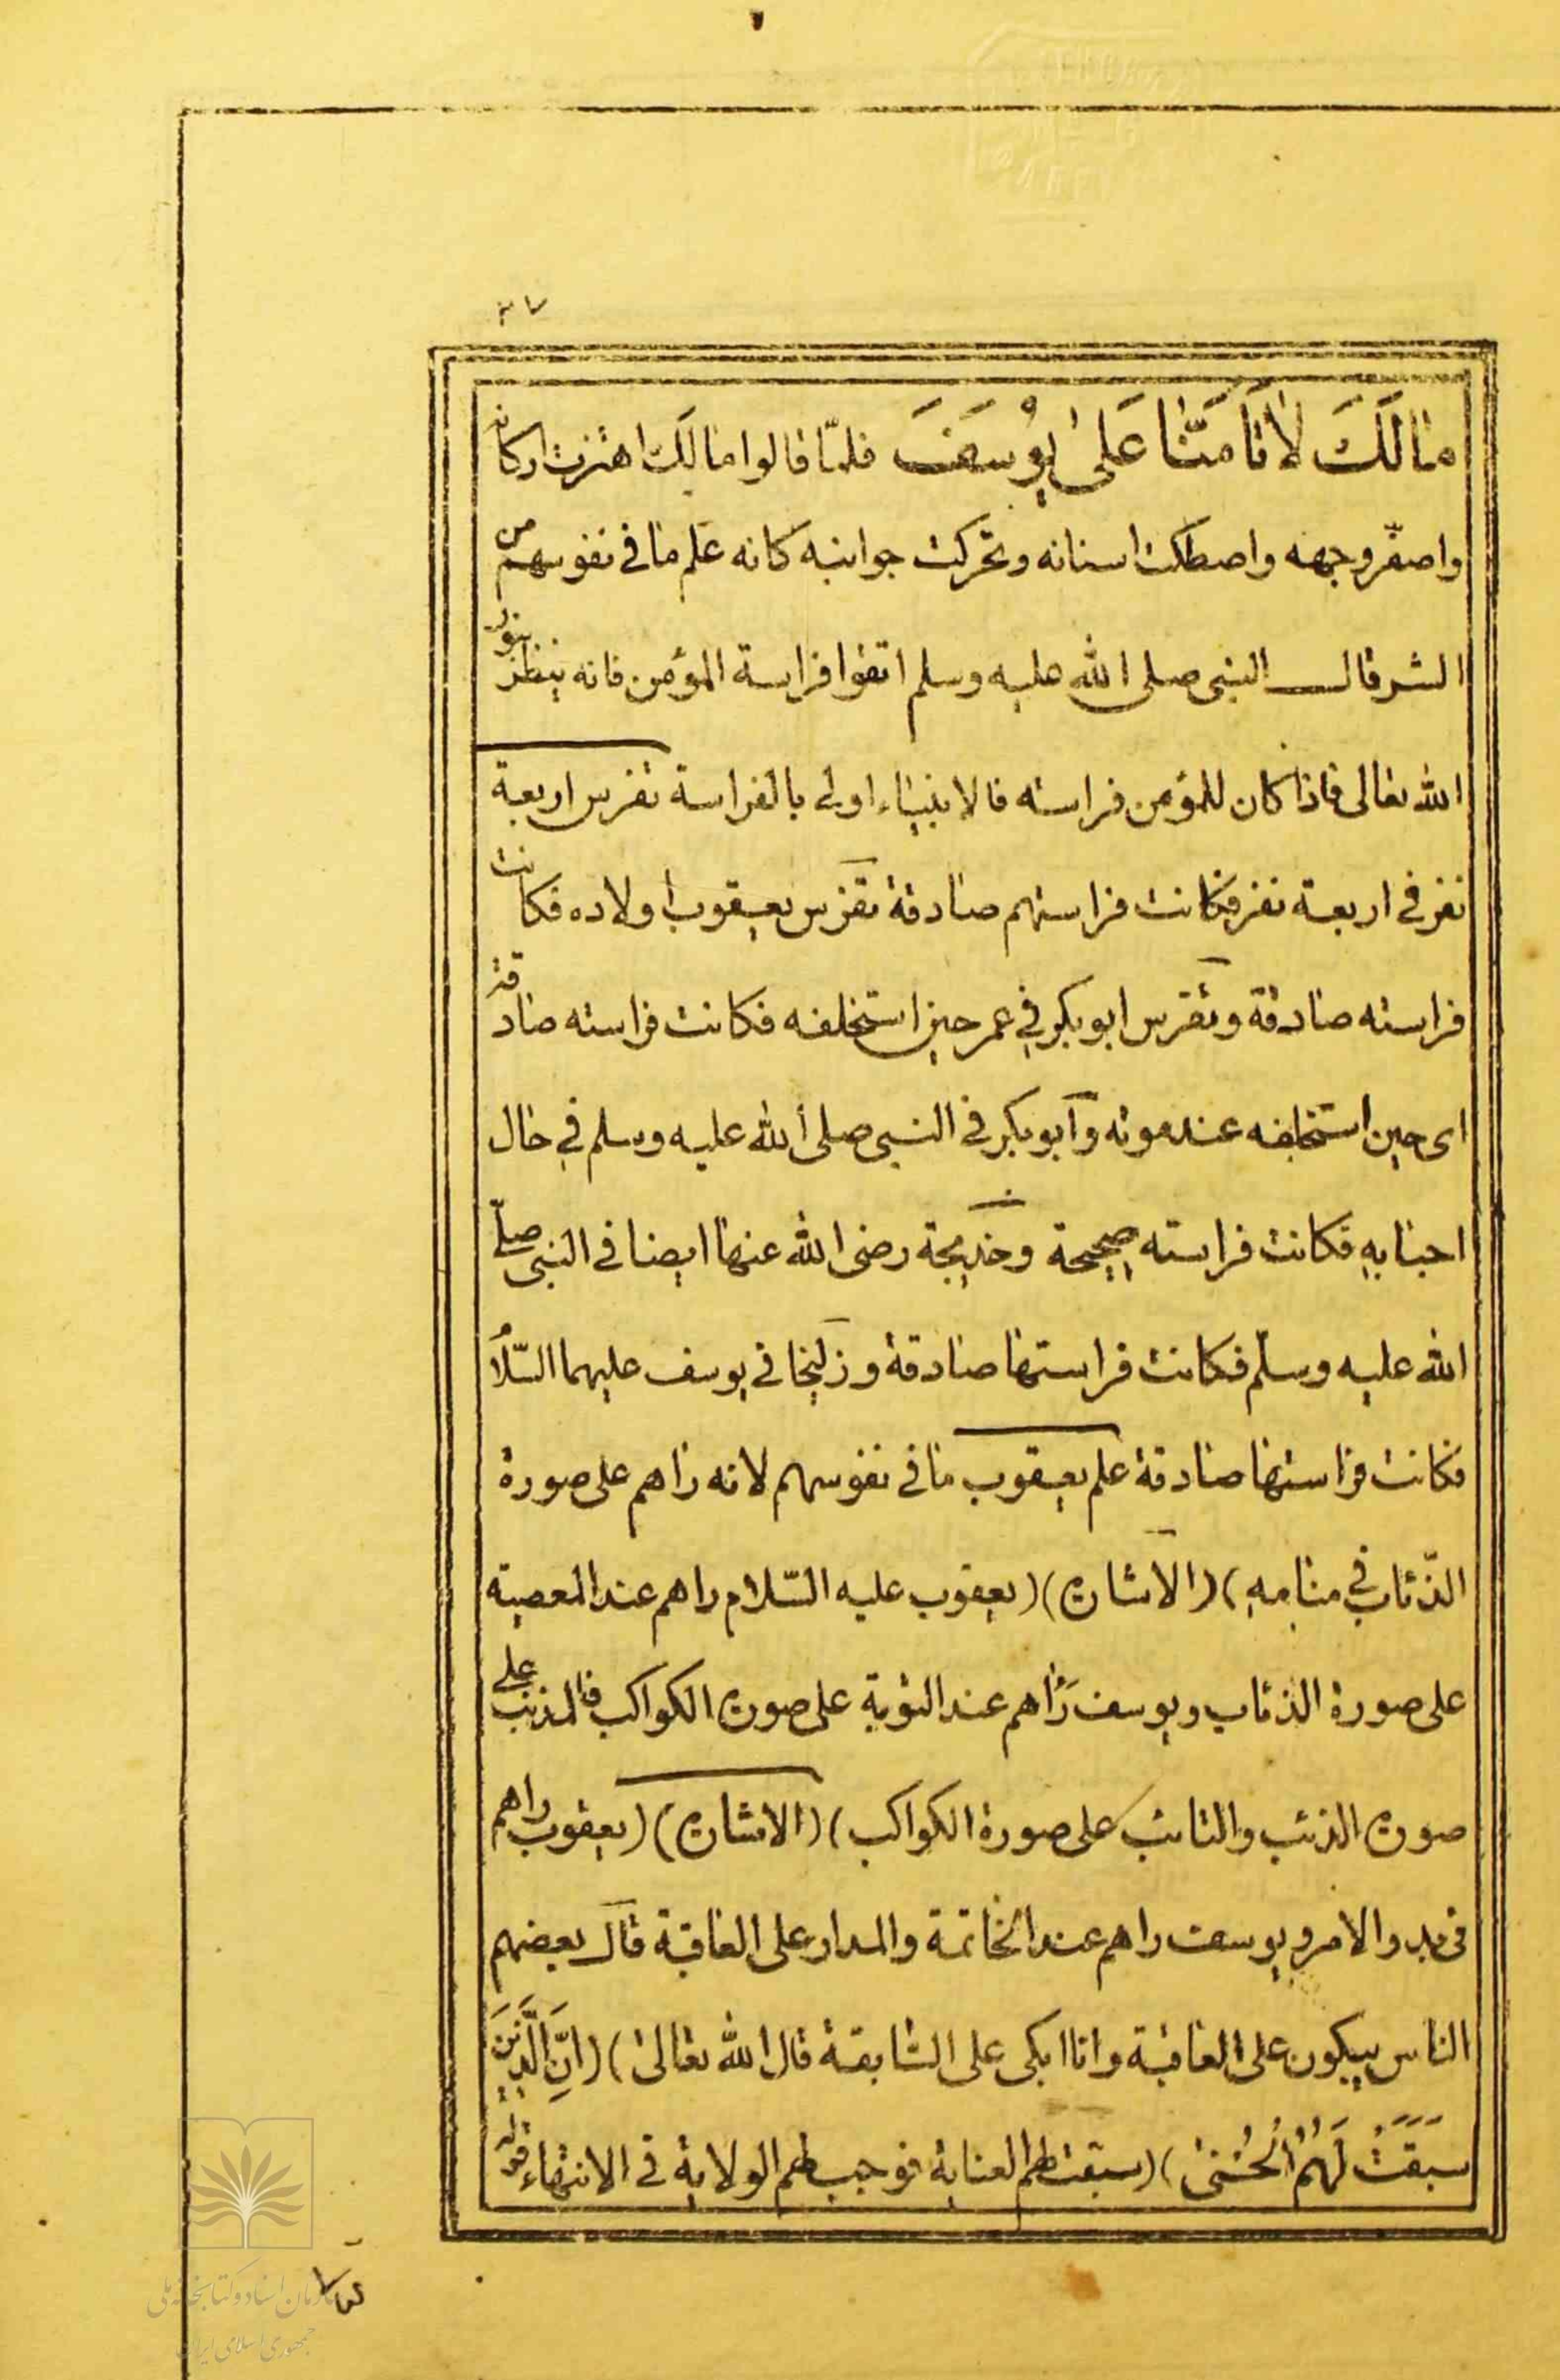 ٢٧
مَالَكَ لَا تَأْمَنَّا عَلَىٰ يُوسُفَ فلمّا قالوا مالك اهتزت اركانه
واصفرّ وجهه واصطكت اسنانه وتحركت جوانبه كانه علم ما فى نفوسهم من
الشر قال النبى صلى الله عليه وسلم اتقوا فراسة المؤمن فانه ينظر بنور
الله تعالى فاذا كان للمؤمن فراسته فالانبياء اولى بالفراسة تفرس اربعة
نفر فى اربعة نفر فكانت فراستهم صادقة تفرس يعقوب اولاده فكانت
فراسته صادقة وتفرس ابوبكر في عمر حين استخلفه فكانت فراسته صادقة
اى حين استخلفه عند موته وابوبكر فى النبى صلى الله عليه وسلم في حال
احبابه فكانت فراسته صحيحة وخديجة رضى الله عنها ايضا فى النبى صلى
الله عليه وسلّم فكانت فراستها صادقة وزليخا فى يوسف عليهما السّلام
فكانت فراستها صادقة علم يعقوب ما فى نفوسهم لانه راهم على صورة
الذّئاب في منامه) (الاشارة) (يعقوب عليه السّلام راهم عند المعصية
على صورة الذئاب ويوسف رَاهم عند التوبة على صورة الكواكب فالمذنب على
صورة الذئب والتائب على صورة الكواكب) (الاشارة) (يعقوب راهم
فى بدو الامر ويوسف راهم عند الخاتمة والمدار على العاقبة قال بعضهم
الناس يبكون على العاقبة وانا ابكى على السّابقة قال الله تعالىٰ) (اِنَّ الَّذِينَ
سَبَقَتْ لَهُمْ الْحُسْنىٰ) (سبقت لهم العناية فوجب لهم الولاية فى الانتهاء قوله
سازمان اسناد و کتابخانه ملی
جمهوری اسلامی ایران